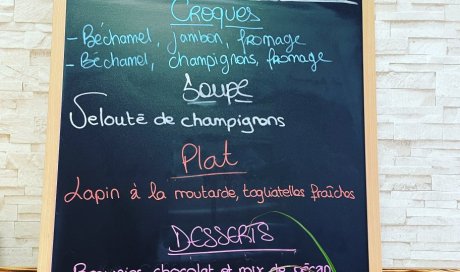 Croques
- Béchamel, jambon, fromage
- Béchamel, champignons, fromage
Soupe
Velouté de champignons
Plat
Lapin à la moutarde, tagliatelles fraîches
DESSERTS
Brownies chocolat et mix de pécan